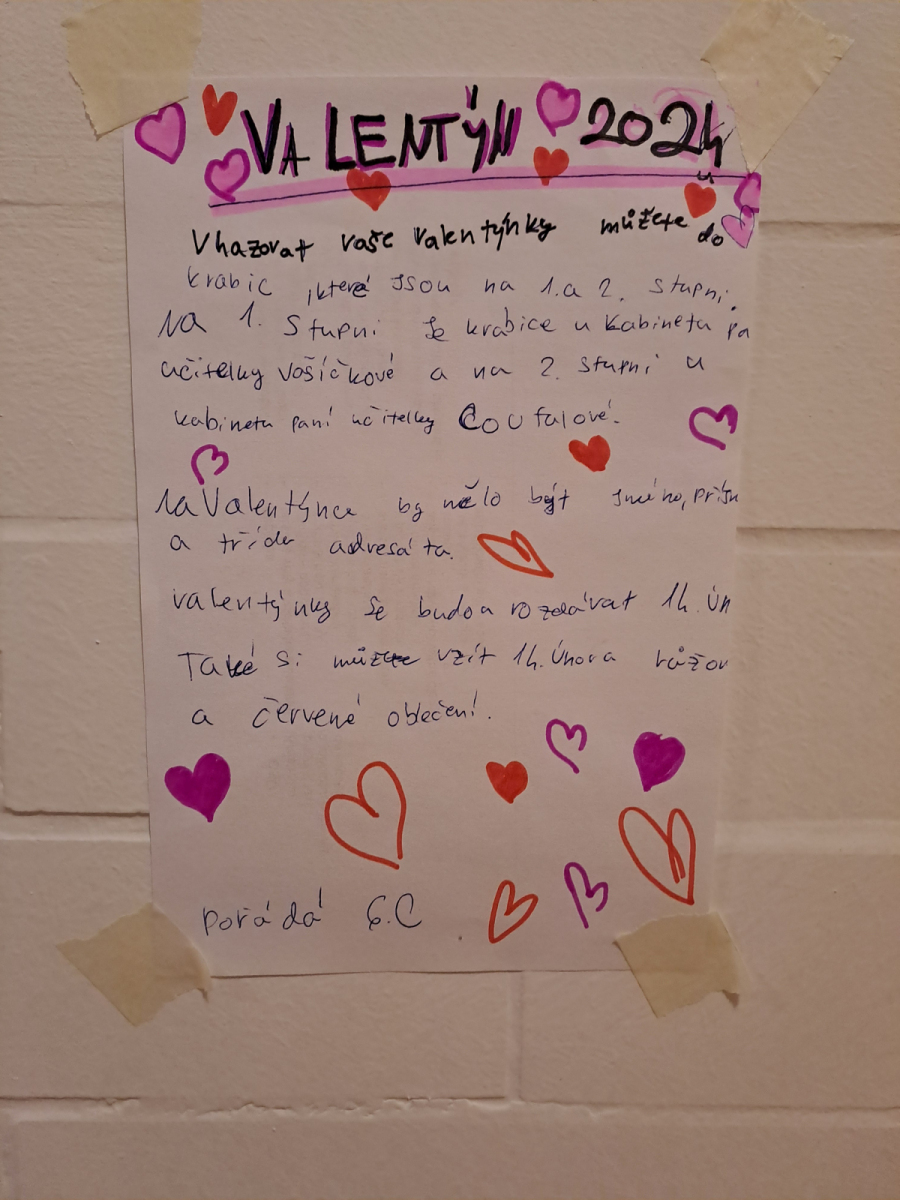 VALENTÝN 2024
Vhazovat vaše valentýnky můžete do
krabic ,které jsou na 1. a 2. stupni.
Na 1. stupni je krabice u kabinetu pa
učitelky Vošíčkové a na 2. stupni u
kabinetu paní učitelky Coufalové.
na Valentýnce by mělo být jméno, příjm
a třída adresáta.
valentýnky se budou rozdávat 14. ún
Také si můžete vzít 14. února růžov
a červené oblečení.
pořádá 6.C